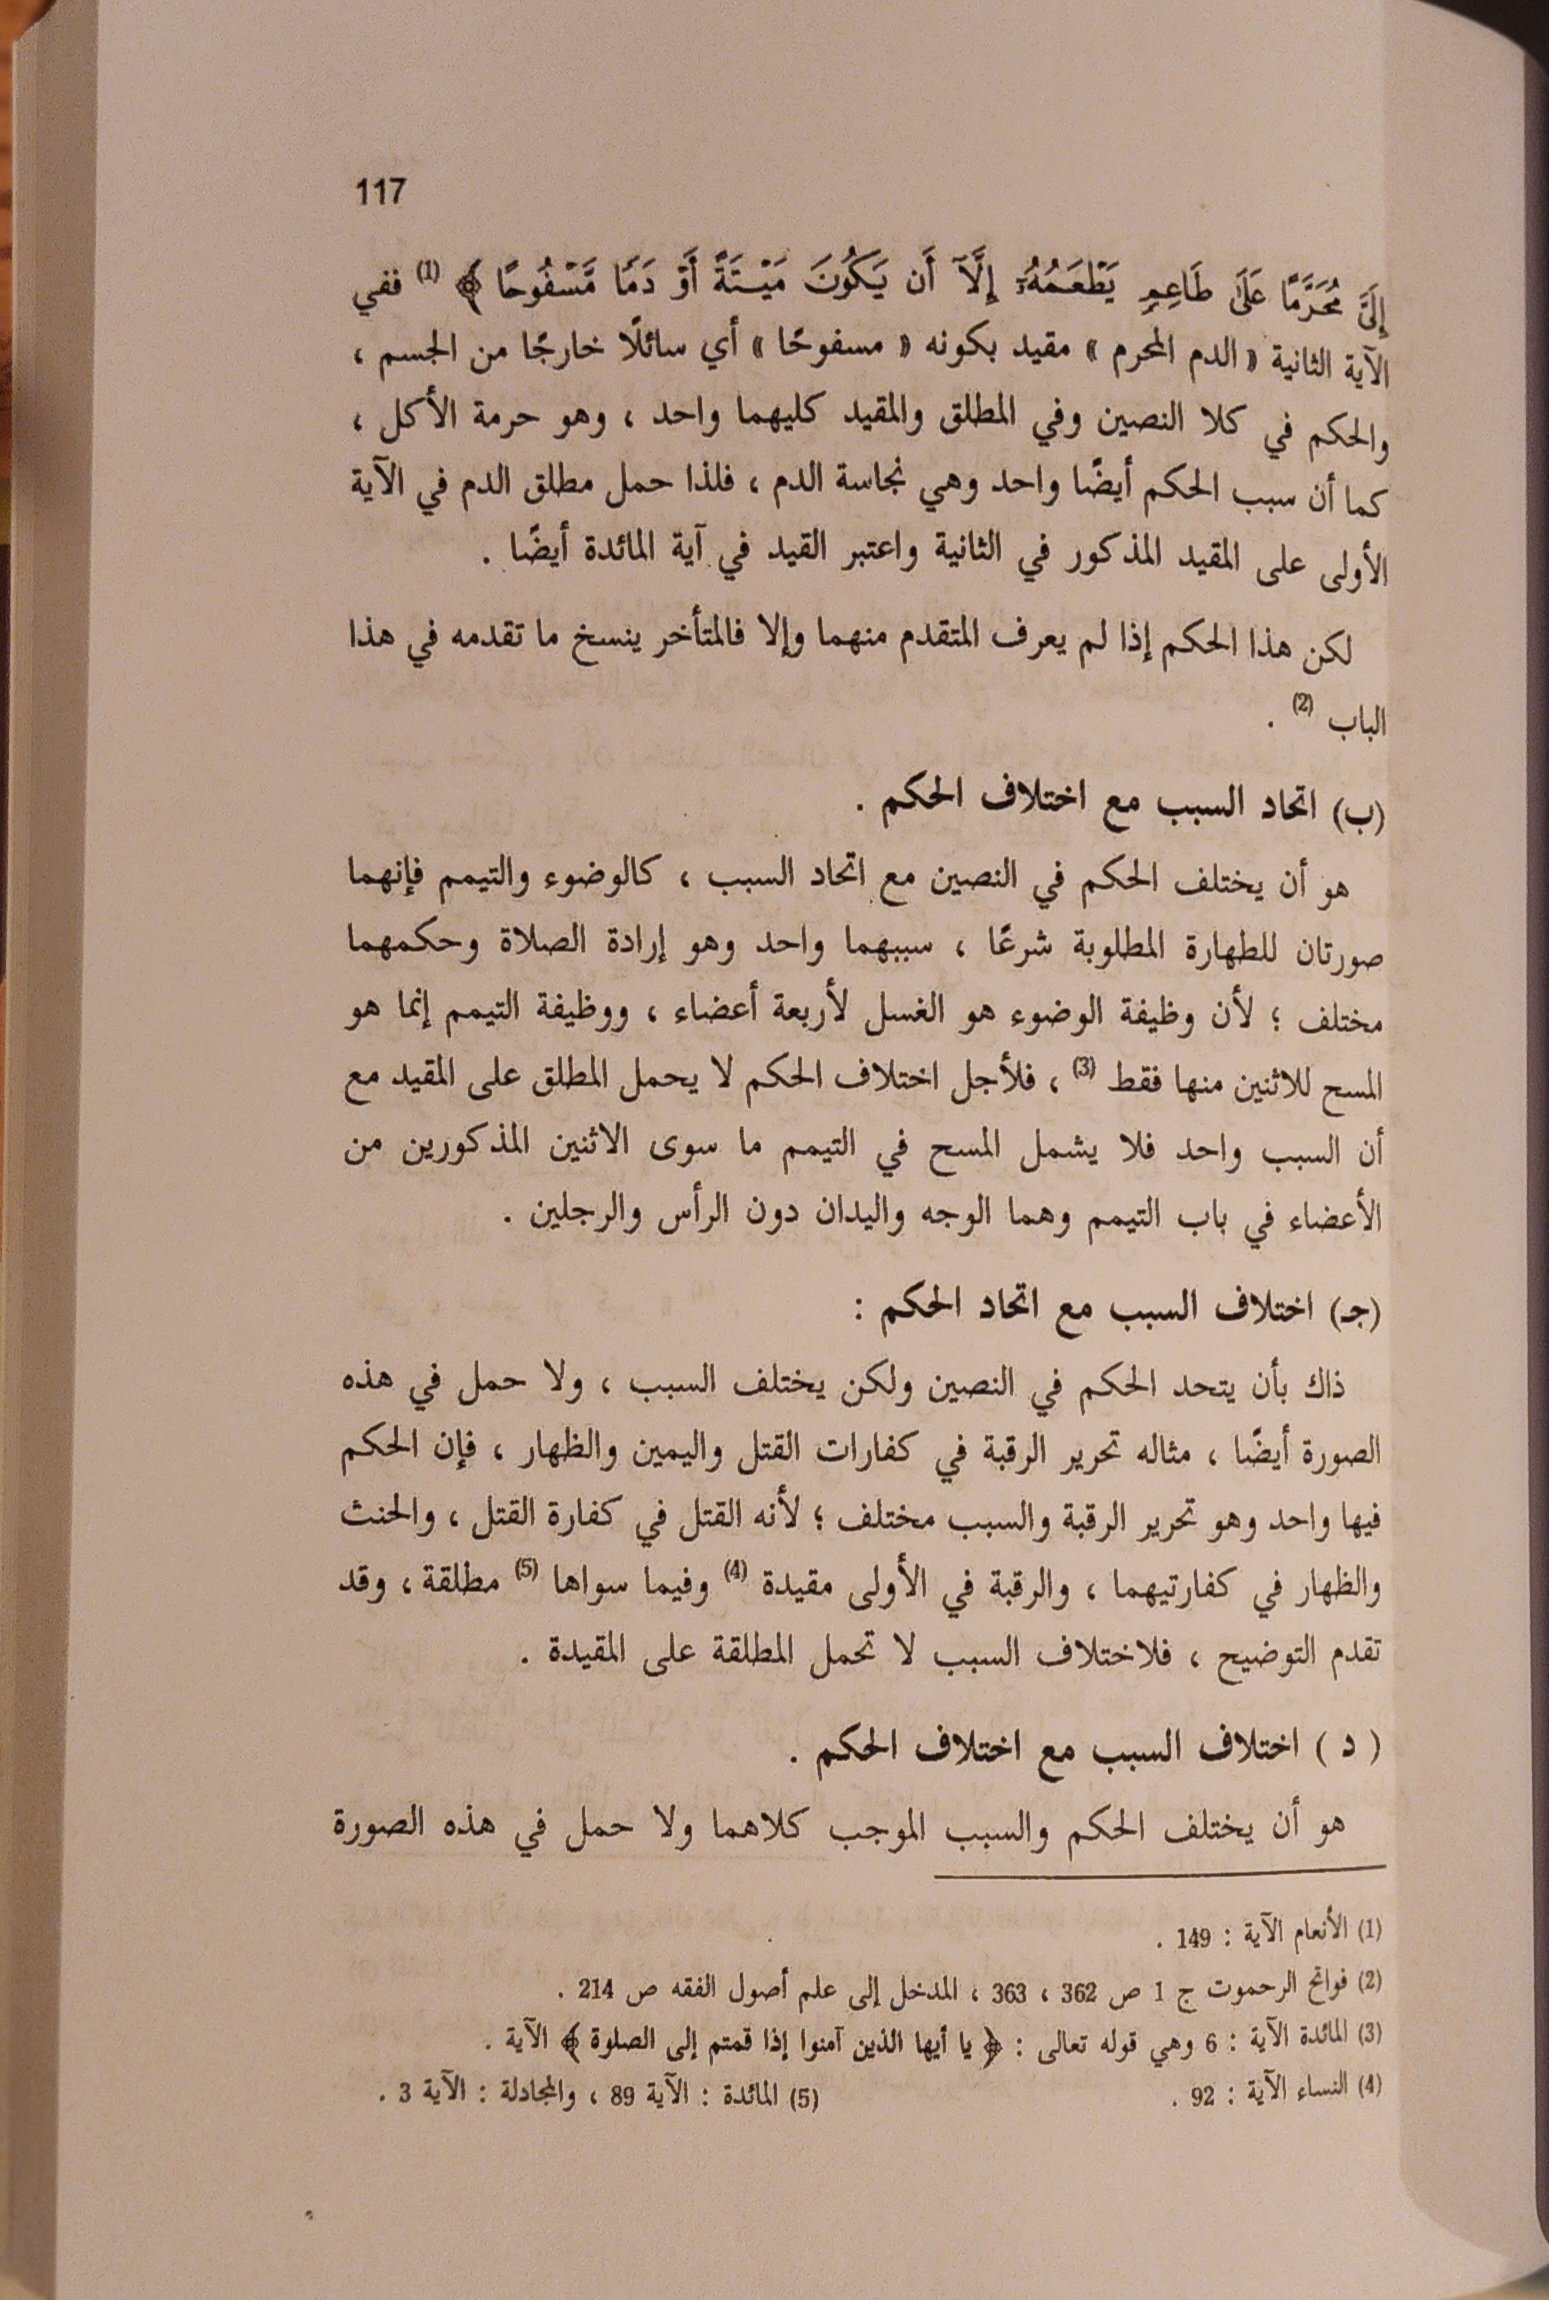 117
إِلَىَّ مُحَرَّمًا عَلَىٰ طَاعِمٍ يَطْعَمُهُۥٓ إِلَّآ أَن يَكُونَ مَيْتَةً أَوْ دَمًا مَّسْفُوحًا ﴾ (1) ففي
الآية الثانية « الدم المحرم » مقيد بكونه « مسفوحًا » أي سائلًا خارجًا من الجسم ،
والحكم في كلا النصين وفي المطلق والمقيد كليهما واحد ، وهو حرمة الأكل ،
كما أن سبب الحكم أيضًا واحد وهي نجاسة الدم ، فلذا حمل مطلق الدم في الآية
الأولى على المقيد المذكور في الثانية واعتبر القيد في آية المائدة أيضًا .
لكن هذا الحكم إذا لم يعرف المتقدم منهما وإلا فالمتأخر ينسخ ما تقدمه في هذا
الباب (2) .
(ب) اتحاد السبب مع اختلاف الحكم .
هو أن يختلف الحكم في النصين مع اتحاد السبب ، كالوضوء والتيمم فإنهما
صورتان للطهارة المطلوبة شرعًا ، سببهما واحد وهو إرادة الصلاة وحكمهما
مختلف ؛ لأن وظيفة الوضوء هو الغسل لأربعة أعضاء ، ووظيفة التيمم إنما هو
المسح للاثنين منها فقط (3) ، فلأجل اختلاف الحكم لا يحمل المطلق على المقيد مع
أن السبب واحد فلا يشمل المسح في التيمم ما سوى الاثنين المذكورين من
الأعضاء في باب التيمم وهما الوجه واليدان دون الرأس والرجلين .
(جـ) اختلاف السبب مع اتحاد الحكم :
ذاك بأن يتحد الحكم في النصين ولكن يختلف السبب ، ولا حمل في هذه
الصورة أيضًا ، مثاله تحرير الرقبة في كفارات القتل واليمين والظهار ، فإن الحكم
فيها واحد وهو تحرير الرقبة والسبب مختلف ؛ لأنه القتل في كفارة القتل ، والحنث
والظهار في كفارتيهما ، والرقبة في الأولى مقيدة (4) وفيما سواها (5) مطلقة ، وقد
تقدم التوضيح ، فلاختلاف السبب لا تحمل المطلقة على المقيدة .
( د ) اختلاف السبب مع اختلاف الحكم .
هو أن يختلف الحكم والسبب الموجب كلاهما ولا حمل في هذه الصورة
(1) الأنعام الآية : 149 .
(2) فواتح الرحموت ج 1 ص 362 ، 363 ، المدخل إلى علم أصول الفقه ص 214 .
(3) المائدة الآية : 6 وهي قوله تعالى : ﴿ يا أيها الذين آمنوا إذا قمتم إلى الصلوة ﴾ الآية .
(4) النساء الآية : 92 .
(5) المائدة : الآية 89 ، والمجادلة : الآية 3 .